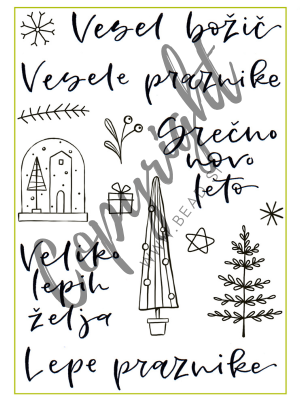 Vesel božič
Vesele praznike
Srečno
novo
leto
Veliko
lepih
želja
Lepe praznike
Copyright